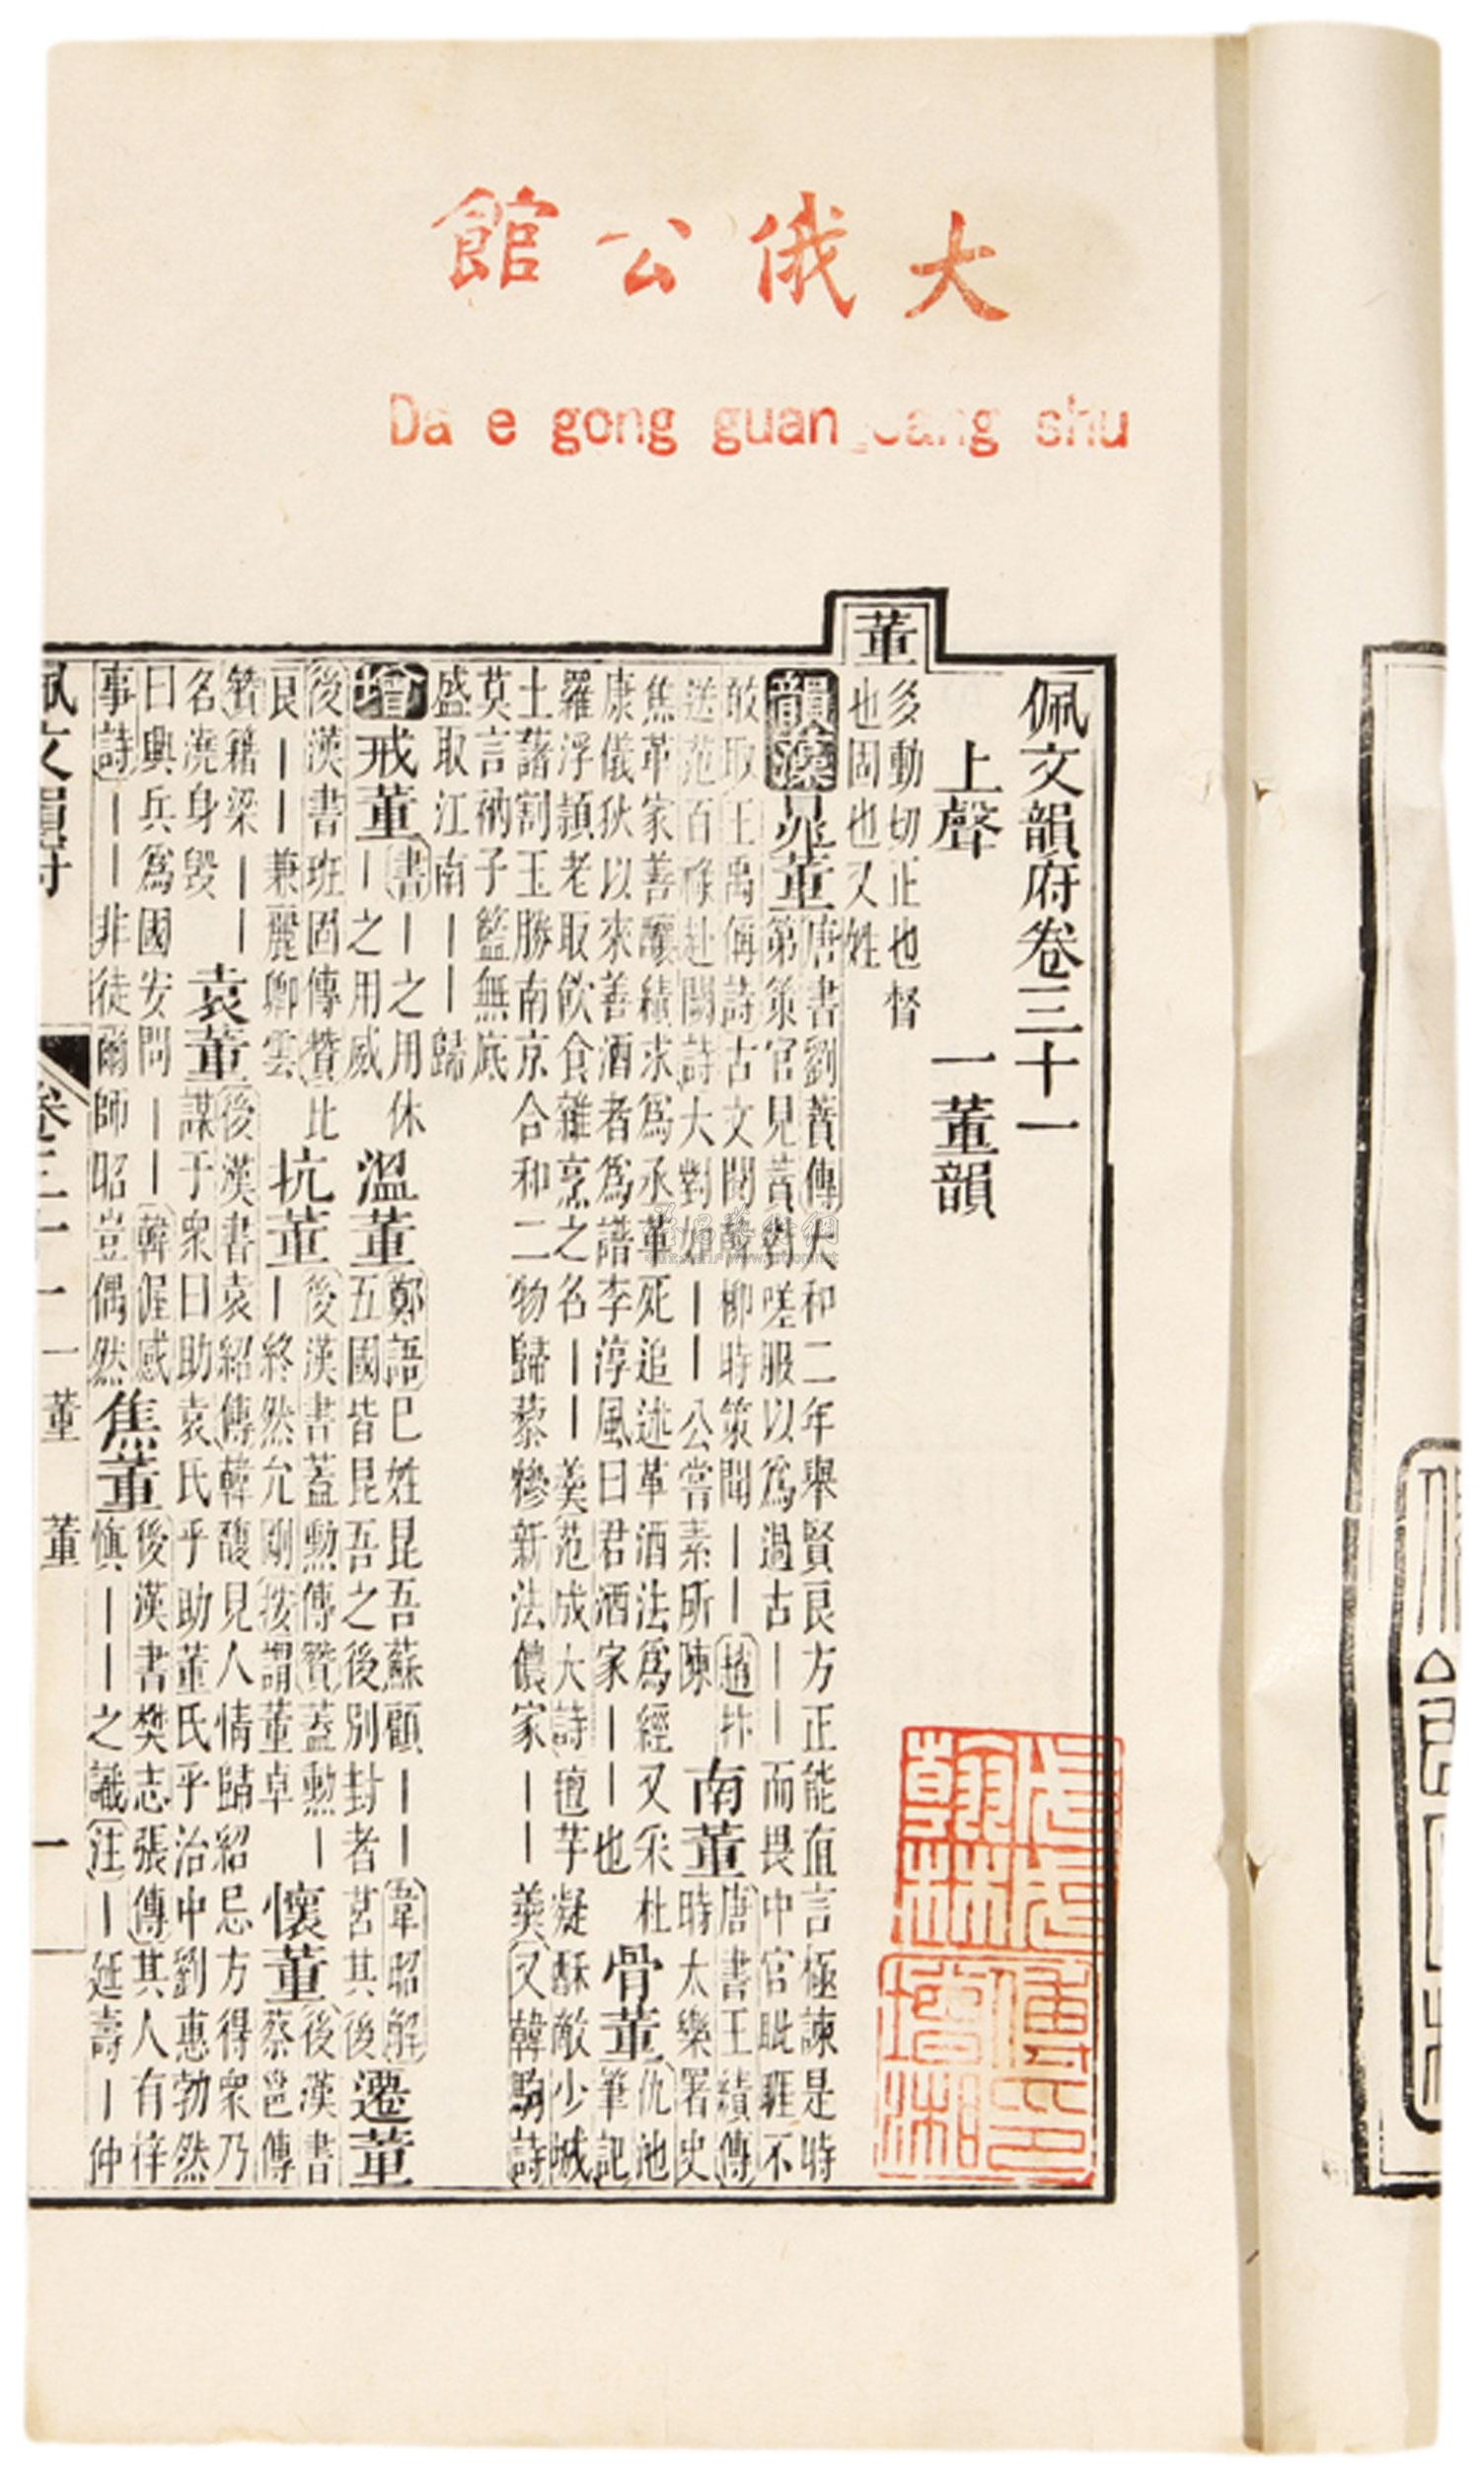 大俄公館
Da e gong guan cang shu
佩文韻府卷三十一
上聲 一董韻
董
多動切正也督
也固也又姓
韻藻 晁董 唐書劉蕡傳大和二年舉賢良方正能直言極諫是時
第策官見蕡對嗟服以爲過古||而畏中官眦睚不
敢取王禹偁詩古文閱韓柳時策聞||趙抃
送范百祿赴闕詩大對如||公嘗素所陳 南董 唐書王績傳
時太樂署史
焦革家善釀績求爲丞革死追述革酒法爲經又采杜
康儀狄以來善酒者爲譜李淳風曰君酒家||也 骨董 仇池
筆記
羅浮頴老取飲食雜烹之名||羹范成大詩氊芋凝酥敵少城
土藷割玉勝南京合和二物歸藜糝新法儂家||羹又韓駒詩
莫言衲子籃無底
盛取江南||歸
增 戒董 書|之用休
|之用威 溫董 鄭語己姓昆吾蘇顧||韋昭解
五國皆昆吾之後別封者莒其後 遷董
後漢書班固傳贊比
良||兼麗卿雲 抗董 後漢書蓋勳傳贊蓋勳|
|終然允剛按謂董卓 懷董 後漢書
蔡邕傳
贊籍梁||
名澆身毀 袁董 後漢書袁紹傳韓馥見人情歸紹忌方得衆乃
謀于衆曰助袁氏乎助董氏乎治中劉惠勃然
曰興兵爲國安問||韓偓感
事詩||非徒爾師昭豈偶然 焦董 後漢書樊志張傳其人有祥
愼||之識注|延壽|仲
佩文韻府 卷三十一 一董 董 一